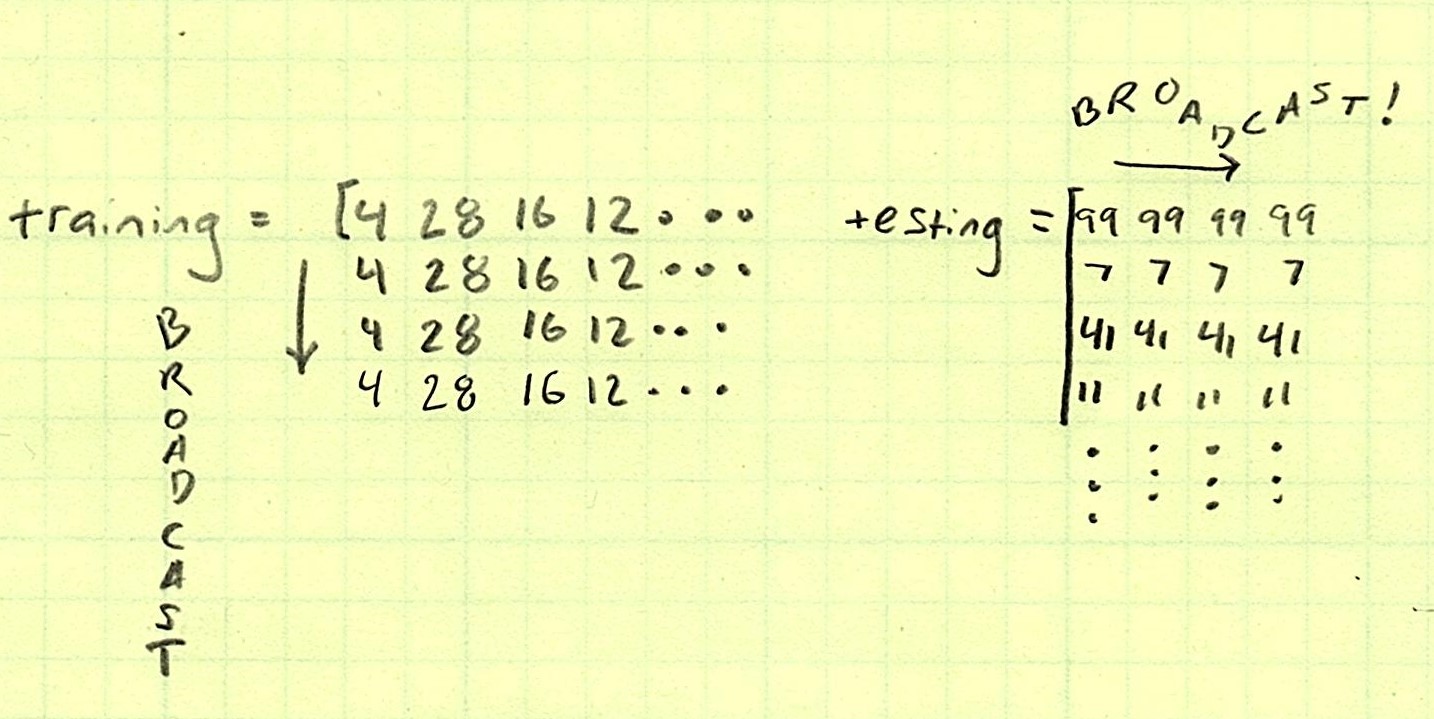 BROADCAST!
training = [4 28 16 12 ... testing = [99 99 99 99
4 28 16 12 ... 7 7 7 7
4 28 16 12 ... 41 41 41 41
4 28 16 12 ... 11 11 11 11
BROADCAST